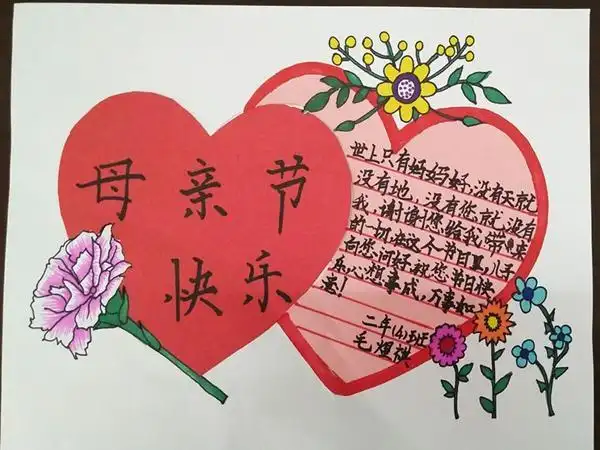 母亲节
快乐
世上只有妈妈好,没有天就
没有地,没有您就没有
我,谢谢您给我带来
的一切,在这个节日里,儿子
向您问好,祝您节日快
乐,心想事成,万事如
意!
二年(4)班
毛煜祺